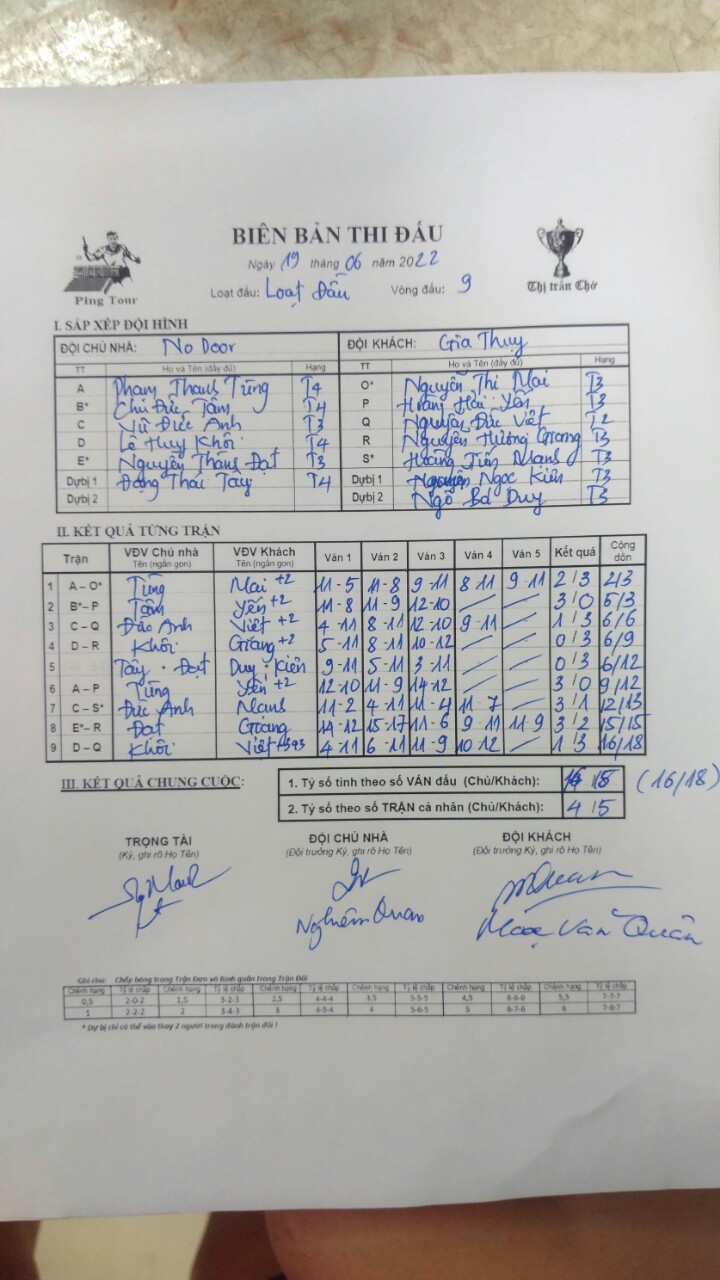 BIÊN BẢN THI ĐẤU
Ngày 19 tháng 06 năm 2022
Ping Tour
Loạt đấu: Loạt Đấu Vòng đấu: 9
Thị trấn Chờ
I. SẮP XẾP ĐỘI HÌNH
ĐỘI CHỦ NHÀ: No Door ĐỘI KHÁCH: Gia Thụy
TT Họ và Tên (đầy đủ) Hạng TT Họ và Tên (đầy đủ) Hạng
A Phạm Thanh Tùng T4 O* Nguyễn Thị Mai T3
B* Chu Đức Tâm T4 P Hoàng Hải Yến T3
C Vũ Đức Anh T3 Q Nguyễn Đức Việt T2
D Lê Huy Khôi T4 R Nguyễn Hương Giang T3
E* Nguyễn Thành Đạt T3 S* Hoàng Tiến T3
Dự bị 1 Đặng Thái Tây T4 Dự bị 1 Nguyễn Ngọc Kiên T3
Dự bị 2 Dự bị 2 Ngô Bá Duy T3
II. KẾT QUẢ TỪNG TRẬN
Trận VĐV Chủ nhà VĐV Khách Ván 1 Ván 2 Ván 3 Ván 4 Ván 5 Kết quả Cộng dồn
Tên (ngắn gọn) Tên (ngắn gọn)
1 A – O* Tùng Mai +2 11-5 11-8 9-11 8-11 9-11 2/3 2/3
2 B* – P Tâm Yến +2 11-8 11-9 12-10 3/0 5/3
3 C – Q Anh Việt +2 4-11 8-11 12-10 9-11 1/3 6/6
4 D – R Khôi Giang +2 5-11 8-11 10-12 0/3 6/9
5 Tây - Đạt Duy - Kiên 9-11 5-11 3-11 0/3 6/12
6 A – P Tùng Yến +2 12-10 11-9 14-12 3/0 9/12
7 C – S* Đức Anh 11-2 4-11 11-4 11-7 3/1 12/13
8 E* – R Đạt Giang 14-12 15-17 11-6 9-11 11-9 3/2 15/15
9 D – Q Khôi Việt 4-11 6-11 11-9 10-12 1/3 16/18
III. KẾT QUẢ CHUNG CUỘC:
1. Tỷ số tính theo số VÁN đấu (Chủ/Khách): (16/18)
2. Tỷ số theo số TRẬN cá nhân (Chủ/Khách): 4/5
TRỌNG TÀI ĐỘI CHỦ NHÀ ĐỘI KHÁCH
(Ký, ghi rõ Họ Tên) (Đội trưởng Ký, ghi rõ Họ Tên) (Đội trưởng Ký, ghi rõ Họ Tên)
Văn Quân
Ghi chú: Chấp bóng trong Trận Đơn và Bình quân trong Trận Đôi
Chênh hạng Tỷ lệ chấp Chênh hạng Tỷ lệ chấp Chênh hạng Tỷ lệ chấp Chênh hạng Tỷ lệ chấp Chênh hạng Tỷ lệ chấp Chênh hạng Tỷ lệ chấp
0,5 2-0-2 1,5 3-2-3 2,5 4-4-4 3,5 5-5-5 4,5 6-6-6 5,5 7-7-7
1 2-2-2 2 3-4-3 3 4-5-4 4 5-6-5 5 6-7-6 6 7-8-7
* Dự bị chỉ có thể vào thay 2 người trong đánh trận đôi !